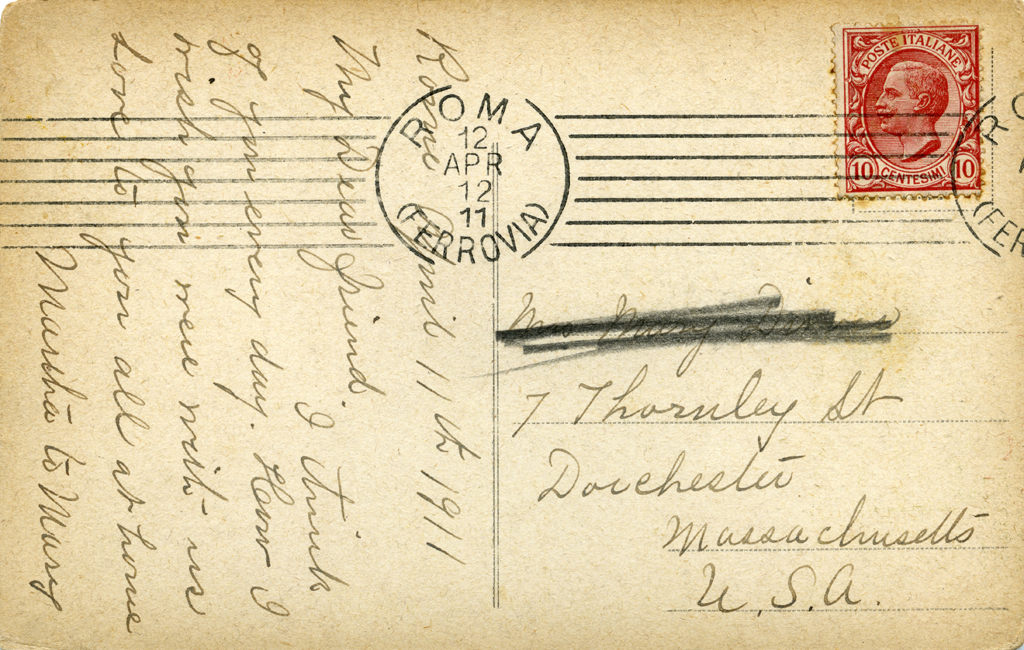 Rome April 11th 1911
My Dear Friend. I think
of you every day. How I
wish you were with us
Love to you all at home
Martha to Mary
ROMA
12
APR
12
11
(FERROVIA)
POSTE ITALIANE
10 CENTESIMI 10
Mrs Mary
7 Thornley St
Dorchester
Massachusetts
U.S.A.